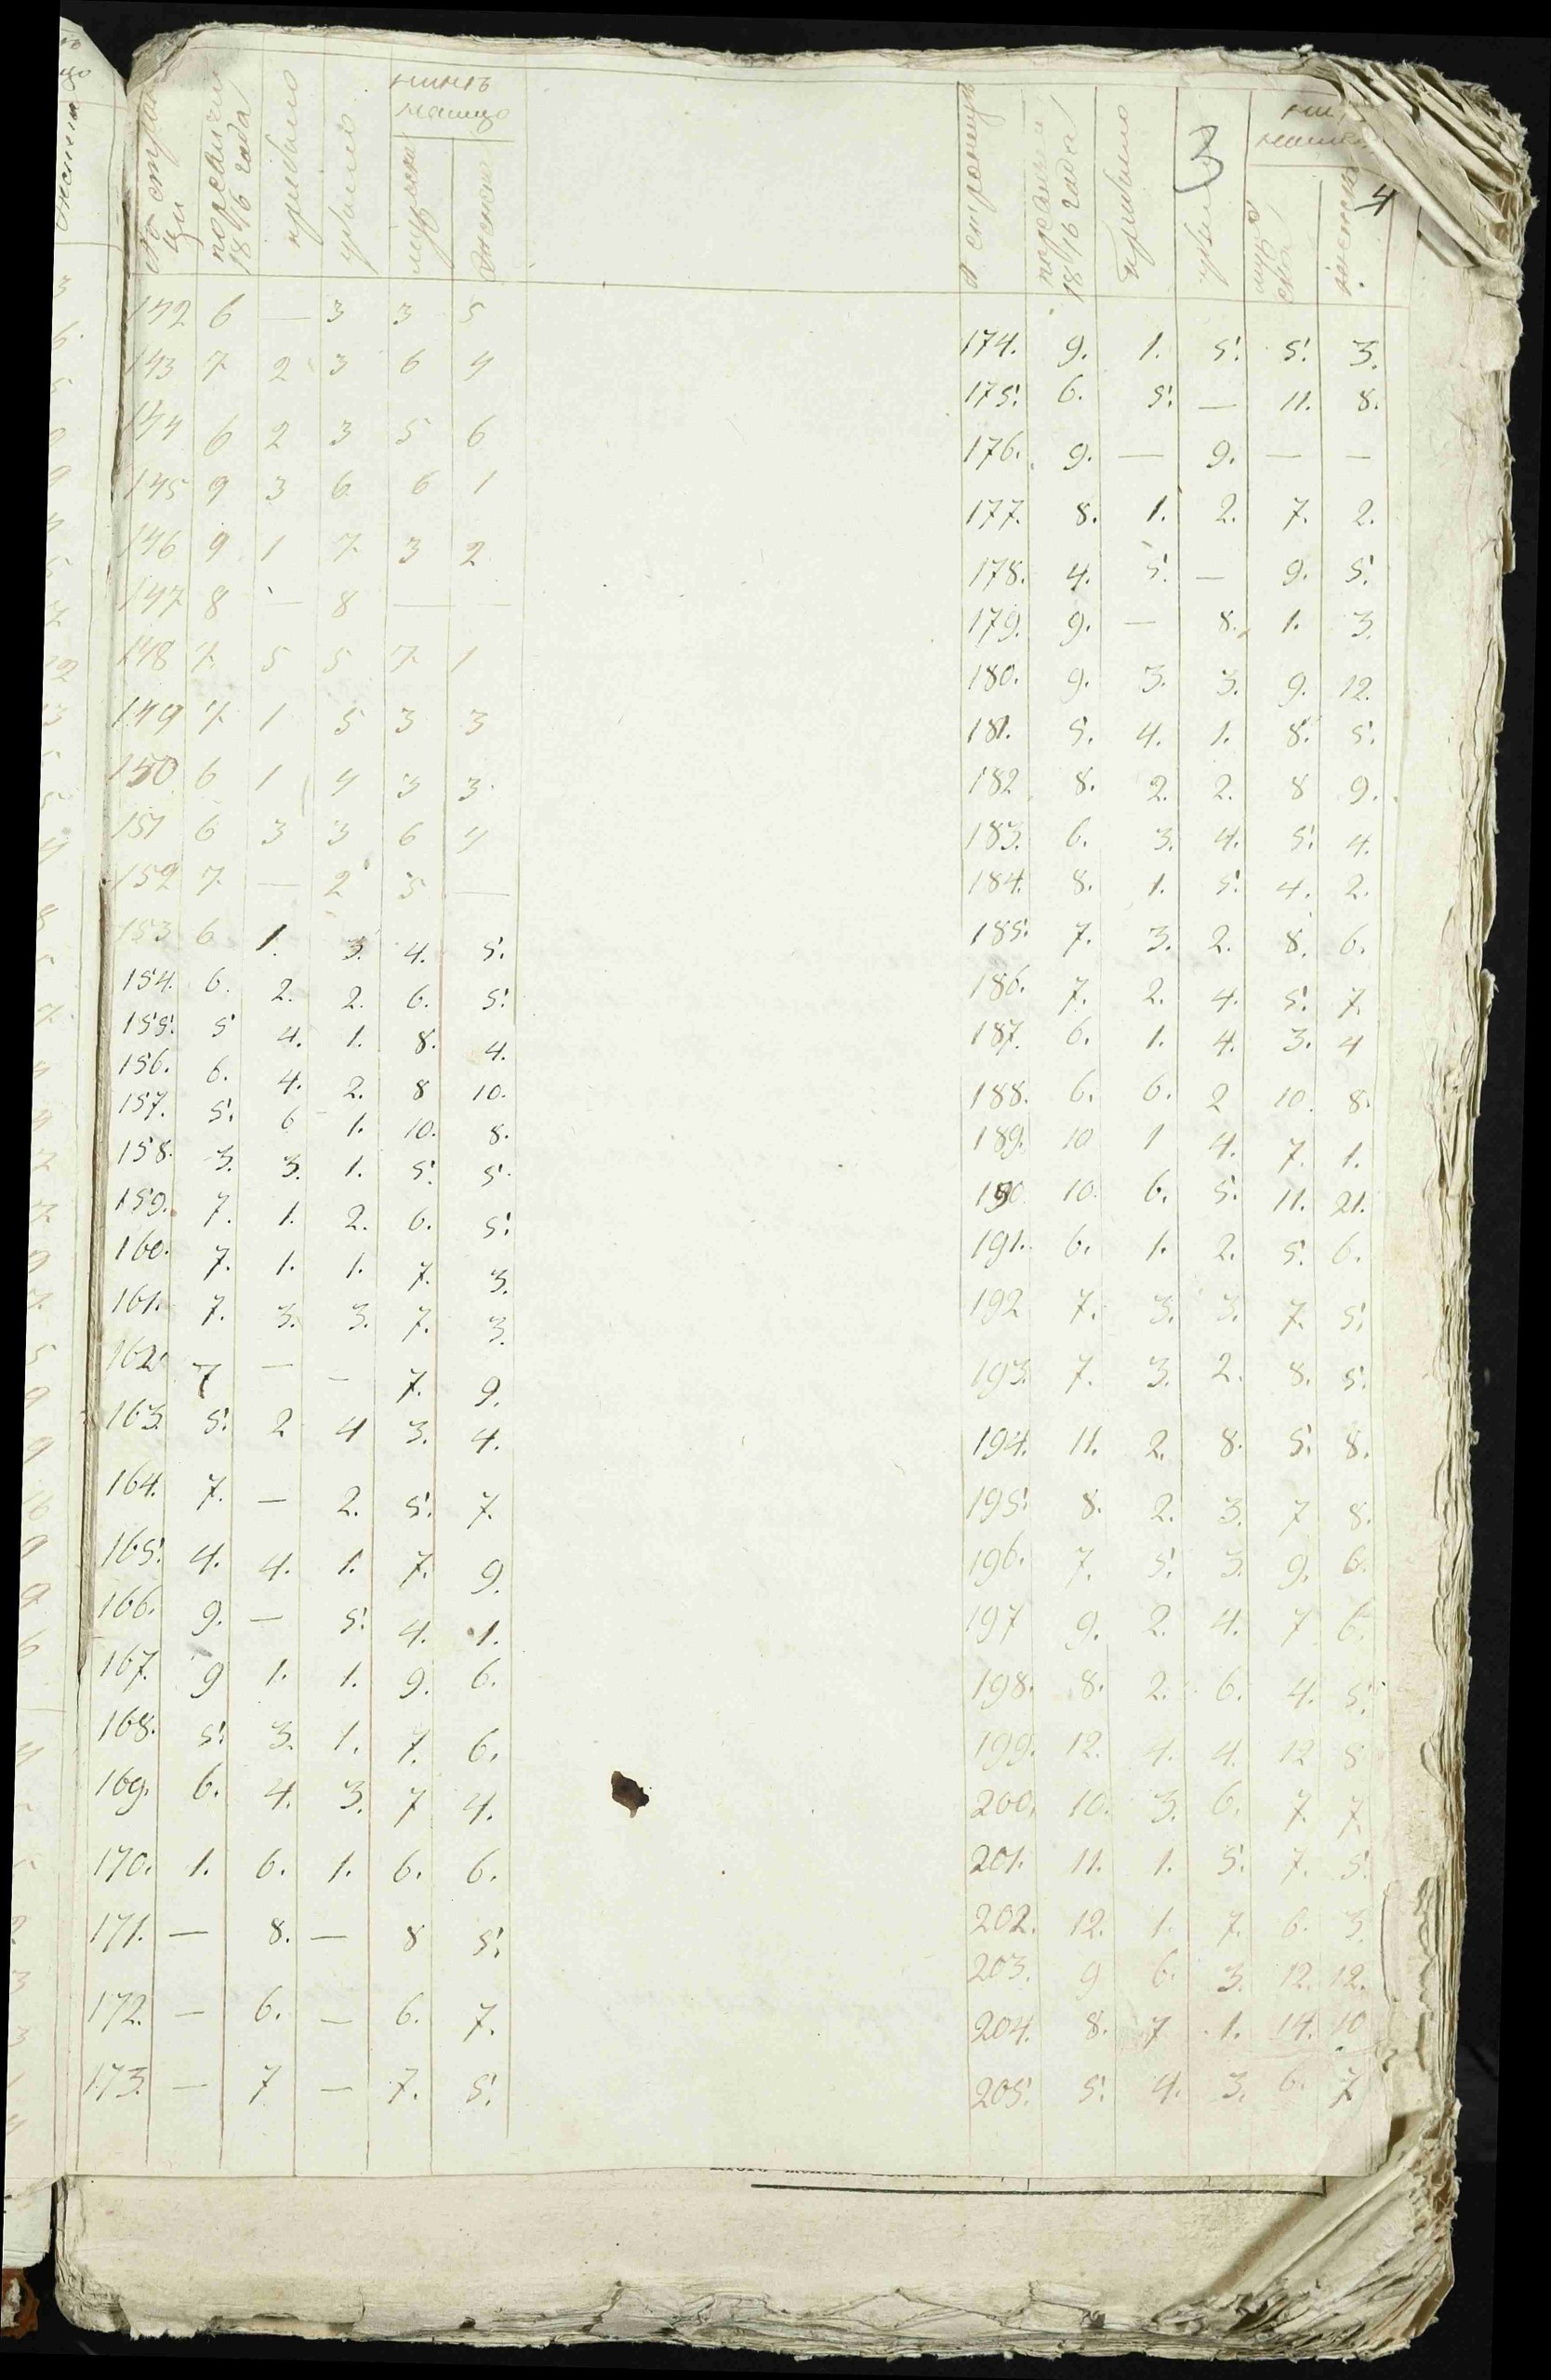 № страницы | по ревизии 1816 года | прибыло | убыло | нынѣ налицо
мужеска | женска
142 6 — 3 3 5
143 7 2 3 6 4
144 6 2 3 5 6
145 9 3 6 6 1
146 9 1 7 3 2
147 8 — 8 — —
148 7 5 5 7 1
149 7 1 5 3 3
150 6 1 4 3 3
151 6 3 3 6 4
152 7 — 2 5 —
153 6 1. 3. 4. 5.
154. 6. 2. 2. 6. 5.
155. 5 4. 1. 8. 4.
156. 6. 4. 2. 8 10.
157. 5. 6 1. 10. 8.
158. 3. 3. 1. 5. 5.
159. 7. 1. 2. 6. 5.
160. 7. 1. 1. 7. 3.
161. 7. 3. 3. 7. 3.
162. 7 — — 7. 9.
163. 5. 2 4 3. 4.
164. 7. — 2. 5. 7.
165. 4. 4. 1. 7. 9.
166. 9. — 5. 4. 1.
167. 9 1. 1. 9. 6.
168. 5. 3. 1. 7. 6.
169. 6. 4. 3. 7 4.
170. 1. 6. 1. 6. 6.
171. — 8. — 8 5.
172. — 6. — 6. 7.
173. — 7 — 7. 5.
3
4
страницы | по ревизии 1816 года | прибыло | убыло | налицо
мужеска | женска
174. 9. 1. 5. 5. 3.
175. 6. 5. — 11. 8.
176. 9. — 9. — —
177. 8. 1. 2. 7. 2.
178. 4. 5. — 9. 5.
179. 9. — 8. 1. 3.
180. 9. 3. 3. 9. 12.
181. 5. 4. 1. 8. 5.
182 8. 2. 2. 8 9.
183. 6. 3. 4. 5. 4.
184. 8. 1. 5. 4. 2.
185. 7. 3. 2. 8. 6.
186. 7. 2. 4. 5. 7.
187. 6. 1. 4. 3. 4
188. 6. 6. 2 10. 8.
189. 10 1 4. 7. 1.
190. 10. 6. 5. 11. 21.
191. 6. 1. 2. 5. 6.
192 7. 3. 3. 7. 5.
193. 7. 3. 2. 8. 5.
194. 11. 2. 8. 5. 8.
195. 8. 2. 3. 7 8.
196. 7. 5. 3. 9. 6.
197 9. 2. 4. 7 6.
198. 8. 2. 6. 4. 5.
199. 12. 4. 4. 12 8
200. 10. 3. 6. 7. 7.
201. 11. 1. 5. 7. 5.
202. 12. 1. 7. 6. 3.
203. 9 6. 3. 12. 12.
204. 8. 7 1. 14. 10
205. 5. 4. 3. 6. 7